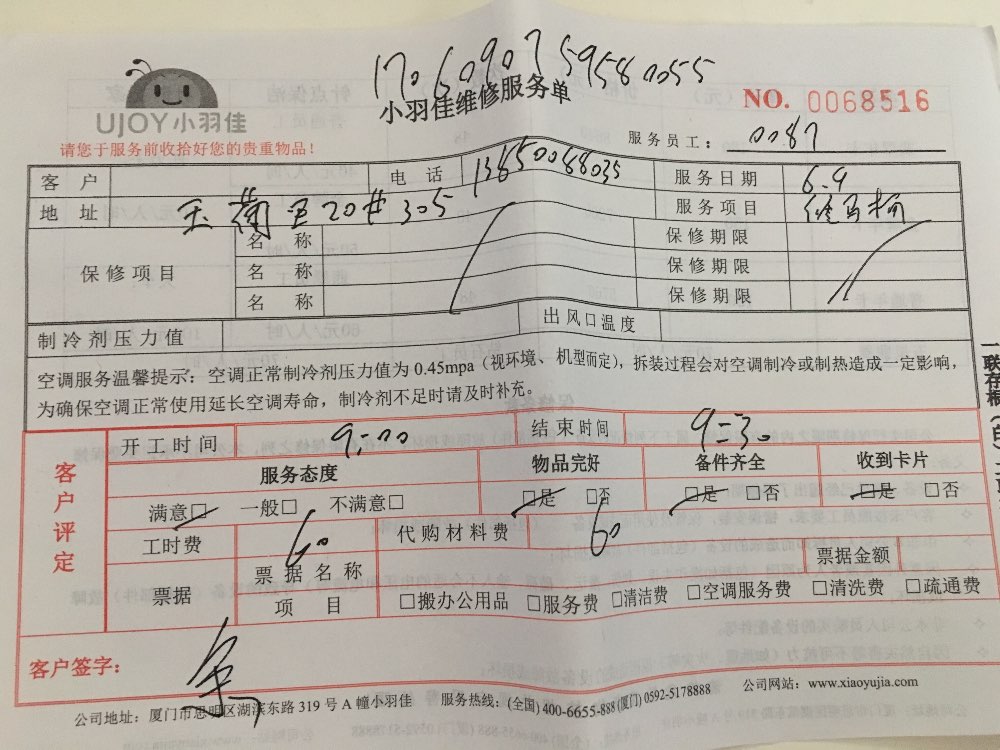 170609075958 0055
小羽佳维修服务单
UJOY小羽佳
NO. 0068516
请您于服务前收拾好您的贵重物品！
服务员工： 0087
客户 电话 13850088035 服务日期 6.9
地址 玉 20# 305 服务项目 修马桶
保修项目 名称 保修期限
名称 保修期限
名称 保修期限
制冷剂压力值 出风口温度
空调服务温馨提示：空调正常制冷剂压力值为 0.45mpa（视环境、机型而定），拆装过程会对空调制冷或制热造成一定影响，
为确保空调正常使用延长空调寿命，制冷剂不足时请及时补充。
客户评定
开工时间 9:00 结束时间 9:30
服务态度 物品完好 备件齐全 收到卡片
满意□ 一般□ 不满意□ □是 □否 □是 □否 □是 □否
工时费 60 代购材料费 60
票据 票据名称 票据金额
项目 □搬办公用品 □服务费 □清洁费 □空调服务费 □清洗费 □疏通费
客户签字：
公司地址：厦门市思明区湖滨东路 319 号 A 幢小羽佳 服务热线：(全国) 400-6655-888 (厦门) 0592-5178888 公司网站：www.xiaoyujia.com